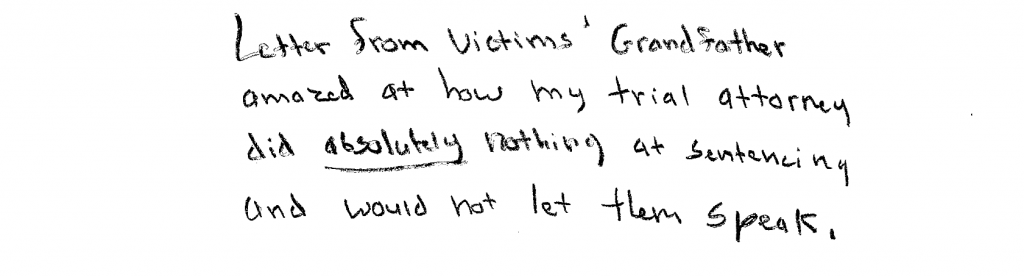 Letter from Victims' Grandfather
amazed at how my trial attorney
did absolutely nothing at sentencing
and would not let them speak.